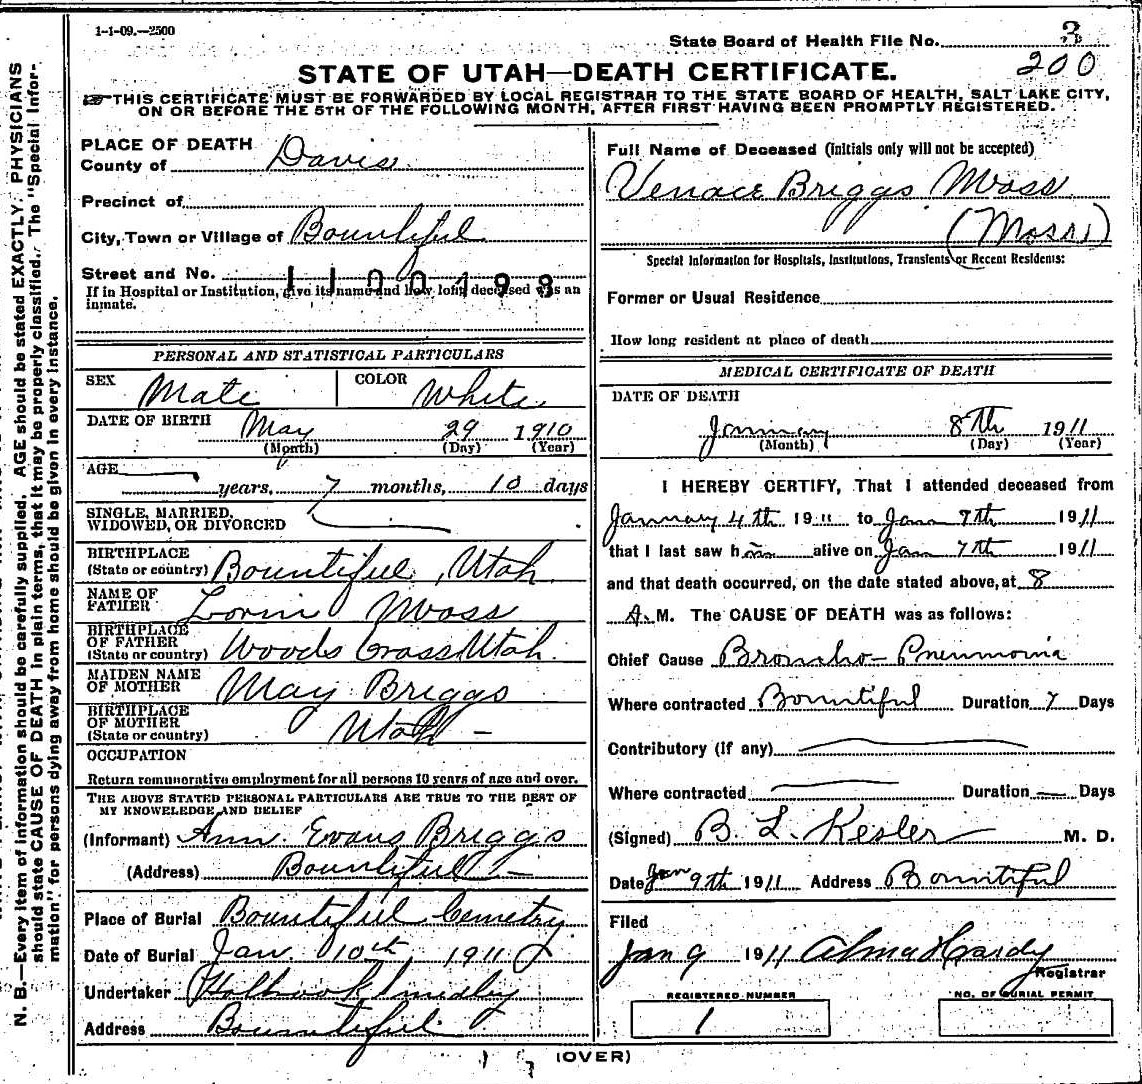 1-1-09.—2500
State Board of Health File No. 3
200
STATE OF UTAH—DEATH CERTIFICATE.
THIS CERTIFICATE MUST BE FORWARDED BY LOCAL REGISTRAR TO THE STATE BOARD OF HEALTH, SALT LAKE CITY,
ON OR BEFORE THE 5TH OF THE FOLLOWING MONTH, AFTER FIRST HAVING BEEN PROMPTLY REGISTERED.
N. B.—Every item of information should be carefully supplied. AGE should be stated EXACTLY. PHYSICIANS
should state CAUSE OF DEATH in plain terms, that it may be properly classified. The "Special Infor-
mation" for persons dying away from home should be given in every instance.
PLACE OF DEATH
County of Davis
Precinct of
City, Town or Village of Bountiful
Street and No.
1100198
If in Hospital or Institution, give its name and how long deceased was an
inmate.
PERSONAL AND STATISTICAL PARTICULARS
SEX Male COLOR White
DATE OF BIRTH May 29 1910
(Month) (Day) (Year)
AGE
years, 7 months, 10 days
SINGLE, MARRIED,
WIDOWED, OR DIVORCED
BIRTHPLACE
(State or country) Bountiful, Utah
NAME OF
FATHER Lorin Moss
BIRTHPLACE
OF FATHER
(State or country) Woods Cross Utah.
MAIDEN NAME
OF MOTHER May Briggs
BIRTHPLACE
OF MOTHER
(State or country) Utah –
OCCUPATION
Return remunerative employment for all persons 10 years of age and over.
THE ABOVE STATED PERSONAL PARTICULARS ARE TRUE TO THE BEST OF
MY KNOWELEDGE AND BELIEF
(Informant) Ann Evans Briggs
(Address) Bountiful –
Place of Burial Bountiful Cemetry
Date of Burial Jan. 10th 1911
Undertaker
Address Bountiful
Full Name of Deceased (initials only will not be accepted)
Venace Briggs Moss
(Moss)
Special Information for Hospitals, Institutions, Transients or Recent Residents:
Former or Usual Residence
How long resident at place of death
MEDICAL CERTIFICATE OF DEATH
DATE OF DEATH
January 8th 1911
(Month) (Day) (Year)
I HEREBY CERTIFY, That I attended deceased from
January 4th 1911 to Jan 7th 1911
that I last saw him alive on Jan 7th 1911
and that death occurred, on the date stated above, at 8
A. M. The CAUSE OF DEATH was as follows:
Chief Cause Broncho-Pneumonia
Where contracted Bountiful Duration 7 Days
Contributory (If any)
Where contracted Duration — Days
(Signed) B. L. Kesler M. D.
Date Jan 9th 1911 Address Bountiful
Filed
Jan 9 1911 Alma Hardy
Registrar
REGISTERED NUMBER
1
NO. OF BURIAL PERMIT
(OVER)